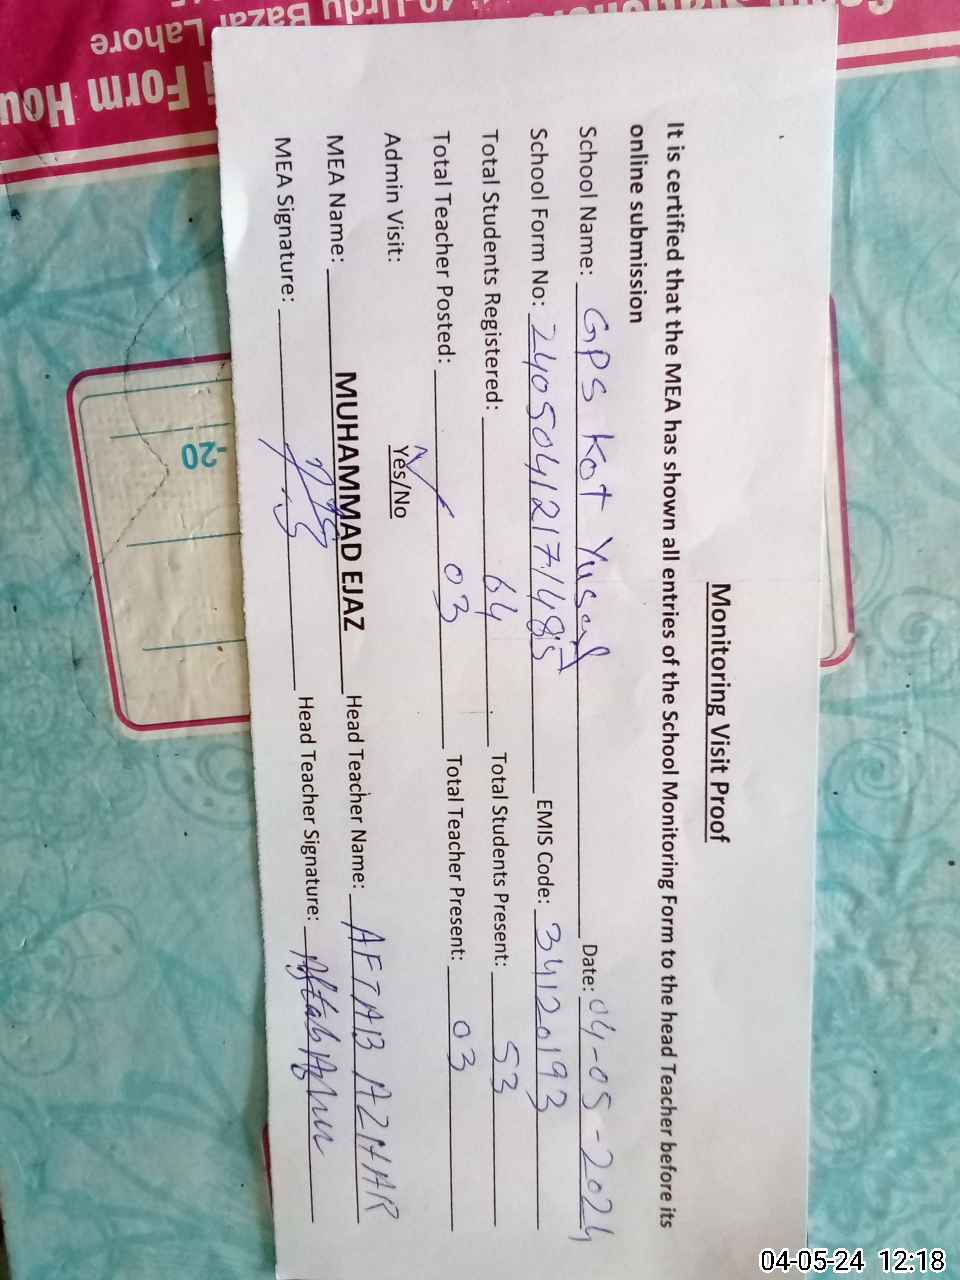 Monitoring Visit Proof
It is certified that the MEA has shown all entries of the School Monitoring Form to the head Teacher before its
online submission
School Name: GPS Kot Yusaf Date: 04-05-2024
School Form No: 24050412171485 EMIS Code: 34120193
Total Students Registered: 64 Total Students Present: 53
Total Teacher Posted: 03 Total Teacher Present: 03
Admin Visit: Yes/No
MEA Name: MUHAMMAD EJAZ Head Teacher Name: AFTAB AZHAR
MEA Signature: Head Teacher Signature: Aftab Azhar
Form Hou
Urdu Bazar
Lahore
-20
04-05-24 12:18